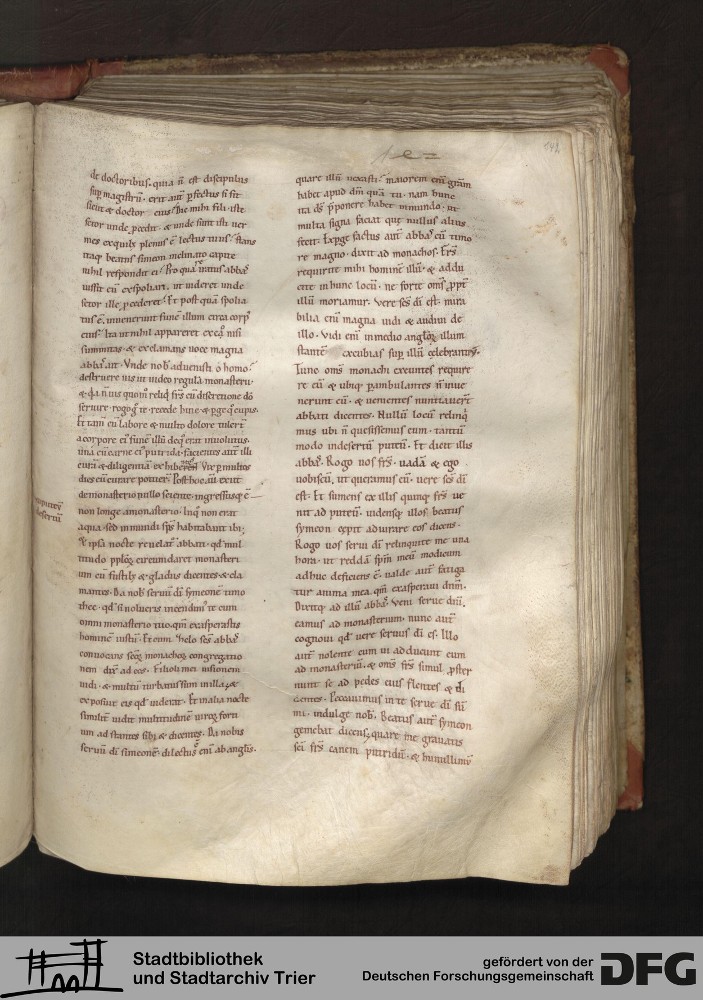 142
de doctoribus. quia n̄ est discipulus
sup̄ magistrū. erit aut̄ pfectus si sit
sicut & doctor eius. Dic mihi fili iste
fetor unde pcedit. & unde sunt isti uer
mes ex quibꝫ plenus ē lectus tuus. Stans
itaqꝫ beatus simeon inclinato capite
nihil respondit ei.
iussit eū expoliari. ut uideret unde
fetor ille pcederet. Et post quā spolia
tus ē. inuenerunt funē illum circa corpꝰ
eiuſ. Ita ut nihil appareret ex eo nisi
summitas. & exclamans uoce magna
abbaſ ait. Vnde nob̄ aduenisti o homo
destruere uis ut uideo regulā monasterii.
seruire. rogo te recede hinc & pge quo cupis.
Et tam cū labore & multo dolore tulerт̄
a corpore eiꝰ funē illū de q̊ erat inuolutus.
una cū carne eiꝰ putrida. facientes aut̄ illi
curā & diligentiā
dies eū curare potuer̄. Post hoc aū exiit
de monasterio nullo sciente. ingressusqꝫ ē
non longe a monasterio. Inq̊ non erat
aqua. sed inmundi sp̄s habitabant ibi;
& ipsa nocte reuelat̄ abbati. qd̓ mul
titudo pplōꝝ circumdaret monasteri
um cū fustibꝫ & gladiis dicentes & cla
mantes. Da nob̄ seruū dī symeonē timo
thee. qd̓ si nolueris incendimꝰ te cum
omni monasterio tuo. qm̄ exasperastis
hominē iustū. Et cum
conuocans secū monachoꝝ congregatio
nem dix̄ ad eos. Filioli mei uisionem
uidi. & multū turbatus sum in illa. &
exposuit eis qd̓ uiderat. Et in alia nocte
similit̄ uidit multitudinē uiroꝝ forti
um adstantes sibi & dicentes. Da nobis
seruū dī simeonē. dilectus ē enī ab angl̄is.
quare illū uexasti. maiorem enī grām
habet apud dn̄m quā tu. nam hunc
ita dꝰ pponere habet in mundo. ut
multa signa faciat quę nullus alius
fecit. Expge factus aut̄ abbaſ cū timo
re magno. dixit ad monachos. Frſ̄
requirite mihi hominē illū. & addu
cite in hunc locū. ne forte om̄s ppt̄
illū moriamur. Vere ses̄ dī est. mira
bilia enī magna uidi & audiui de
illo. Vidi enī in medio angl̄oꝝ illum
stantē excubias sup̄ illū celebrantes.
Tunc om̄s monachi exeuntes require
re eū & ubiqꝫ pambulantes n̄ inue
nerunt eū. & uenientes nuntiauert̄
abbati dicentes. Nullū locū relinq̊
mus ubi n̄ quesissemus eum. tantū
modo in desertū puteū. Et dicit illis
abbaſ. Rogo uos frſ̄. uadā & ego
uobiscū. ut queramus eū. uere ses̄ dī
est. Et sumens ex illis quinqꝫ frſ̄ ue
nit ad puteū. uidensqꝫ illos beatus
symeon cepit adiurare eos dicens.
Rogo uos serui dī relinquite me una
hora. ut reddā spm̄ meū modicum
adhuc deficiens ē. ualde aut̄ fatiga
tur anima mea. qm̄ exasperaui dn̄m.
Dixitqꝫ ad illū abbaſ. Veni serue dn̄i.
eamus ad monasterium. nunc aut̄
cognoui qd̓ uere seruus dī es. Illo
aut̄ nolente cum ui adducunt eum
ad monasteriū. & om̄s frſ̄ simul pster
nunt se ad pedes eius flentes & di
centes. Peccauimus in te serue dī sūi
mi. indulge nob̄. Beatus aut̄ symeon
gemebat dicens. quare me grauatis
sci frſ̄ canem putridū. & humillimū
Stadtbibliothek
und Stadtarchiv Trier
gefördert von der
Deutschen Forschungsgemeinschaft
DFG